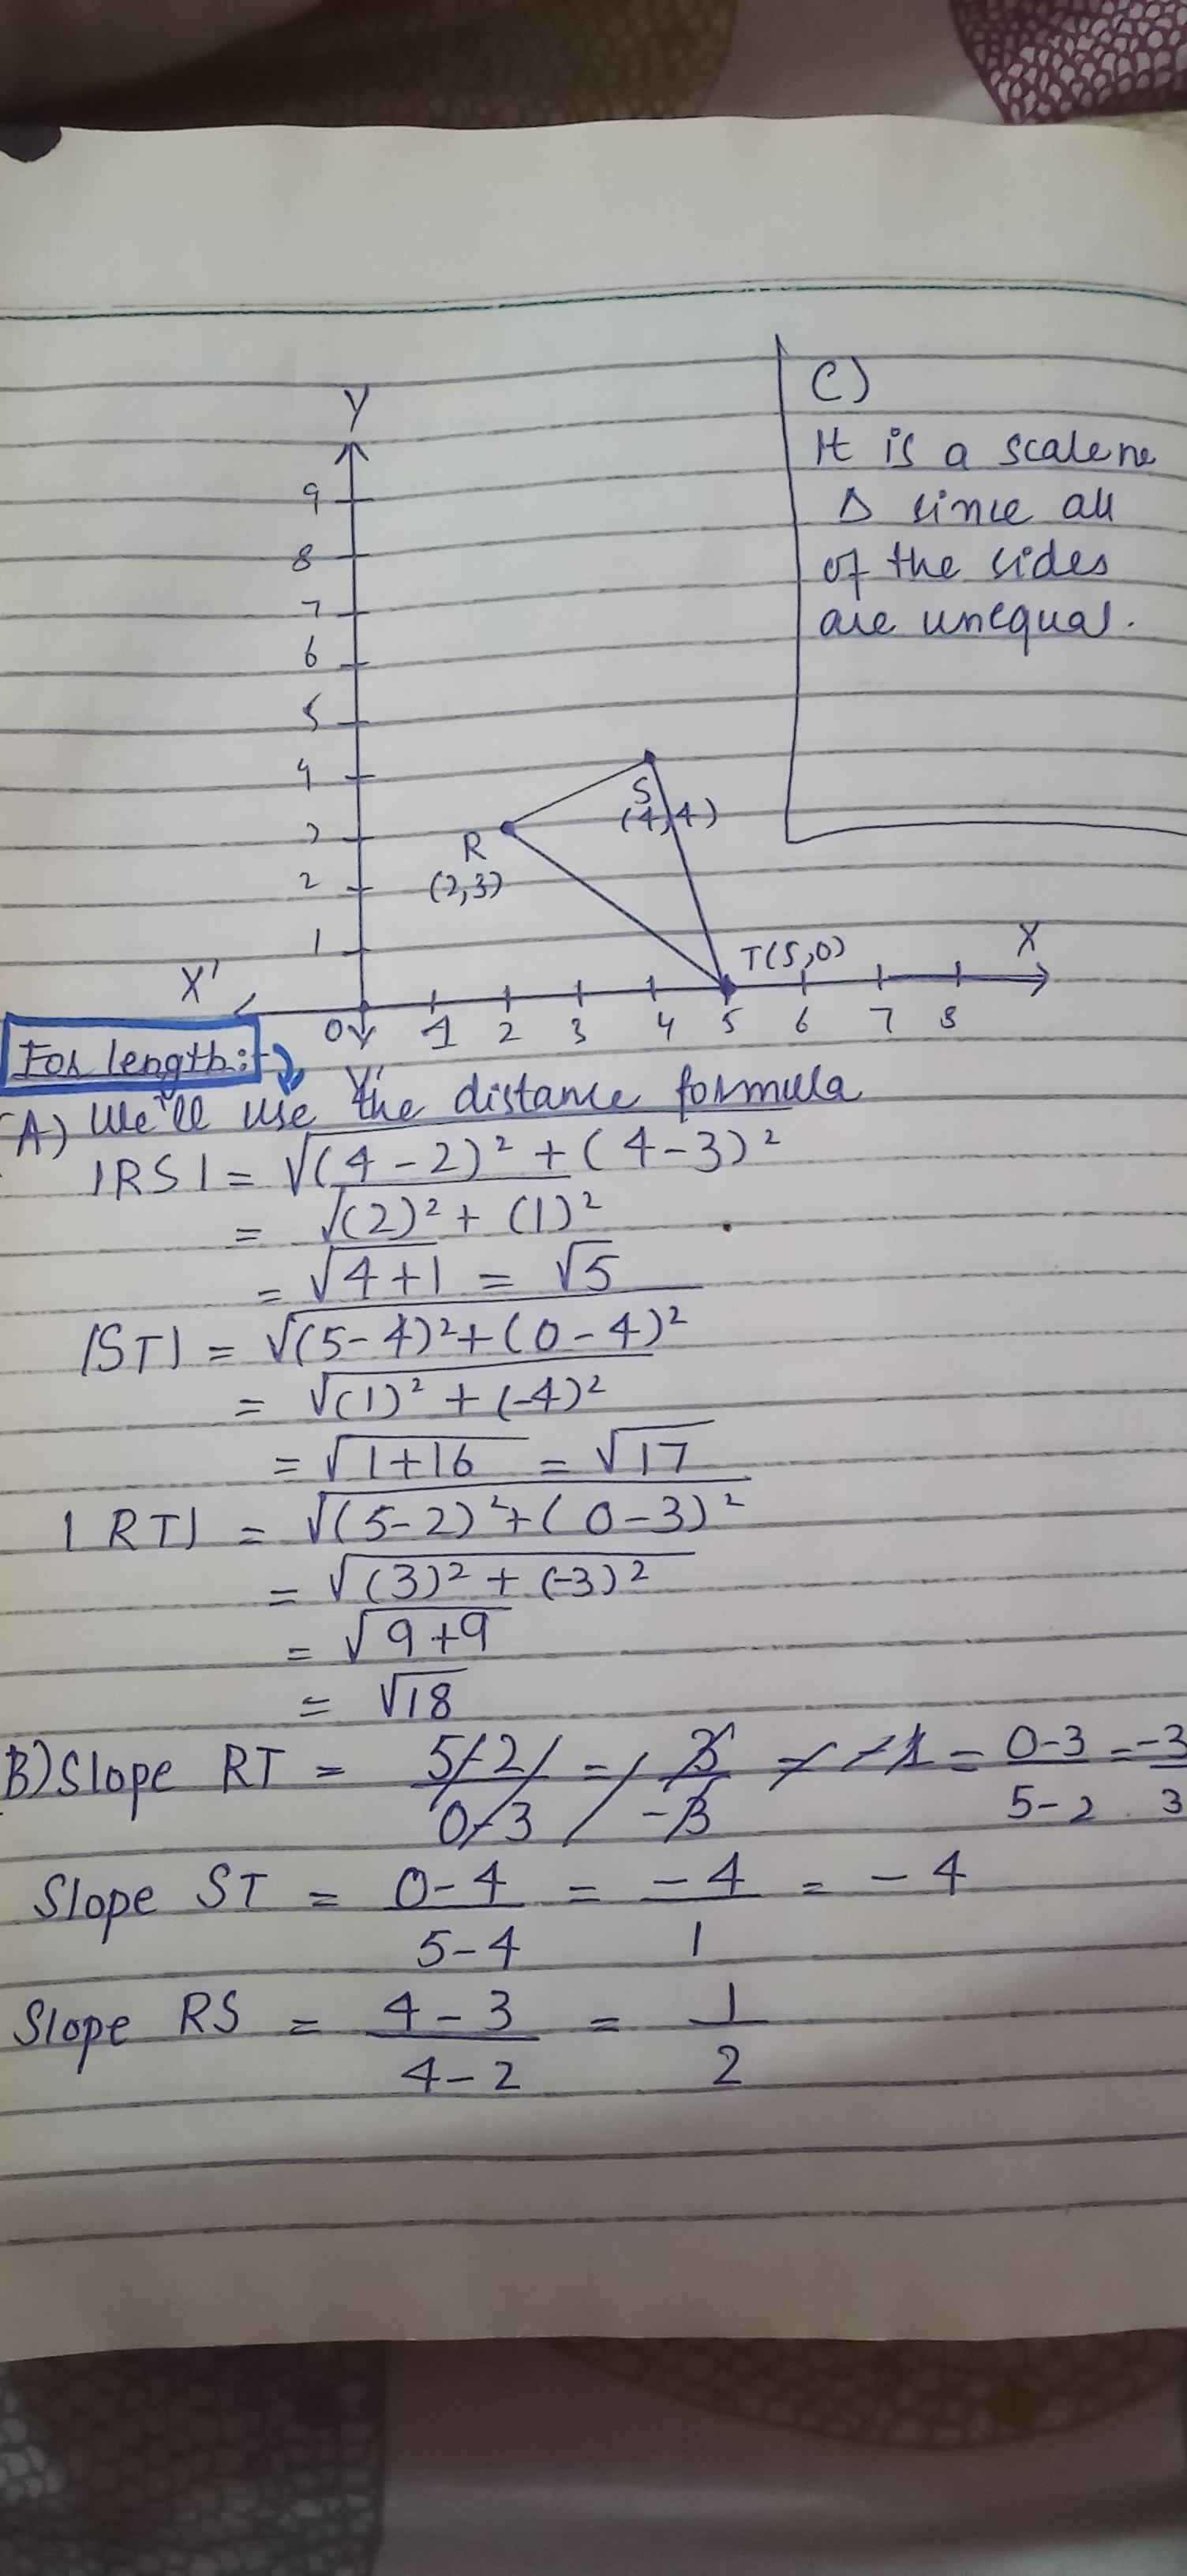 Y
9
8
7
6
5
4
3
2
1
S
(4,4)
R
(2,3)
T(5,0)
X
X'
0 1 2 3 4 5 6 7 8
Y'
C)
It is a scalene
Δ since all
of the sides
are unequal.
For length:-
(A) We'll use the distance formula
|RS| = √(4-2)² + (4-3)²
= √(2)² + (1)²
= √4+1 = √5
|ST| = √(5-4)² + (0-4)²
= √(1)² + (-4)²
= √1+16 = √17
|RT| = √(5-2)² + (0-3)²
= √(3)² + (-3)²
= √9+9
= √18
B) Slope RT = 5-2/0-3 = 3/-3 = -1 = 0-3/5-2 = -3/3
Slope ST = 0-4/5-4 = -4/1 = -4
Slope RS = 4-3/4-2 = 1/2